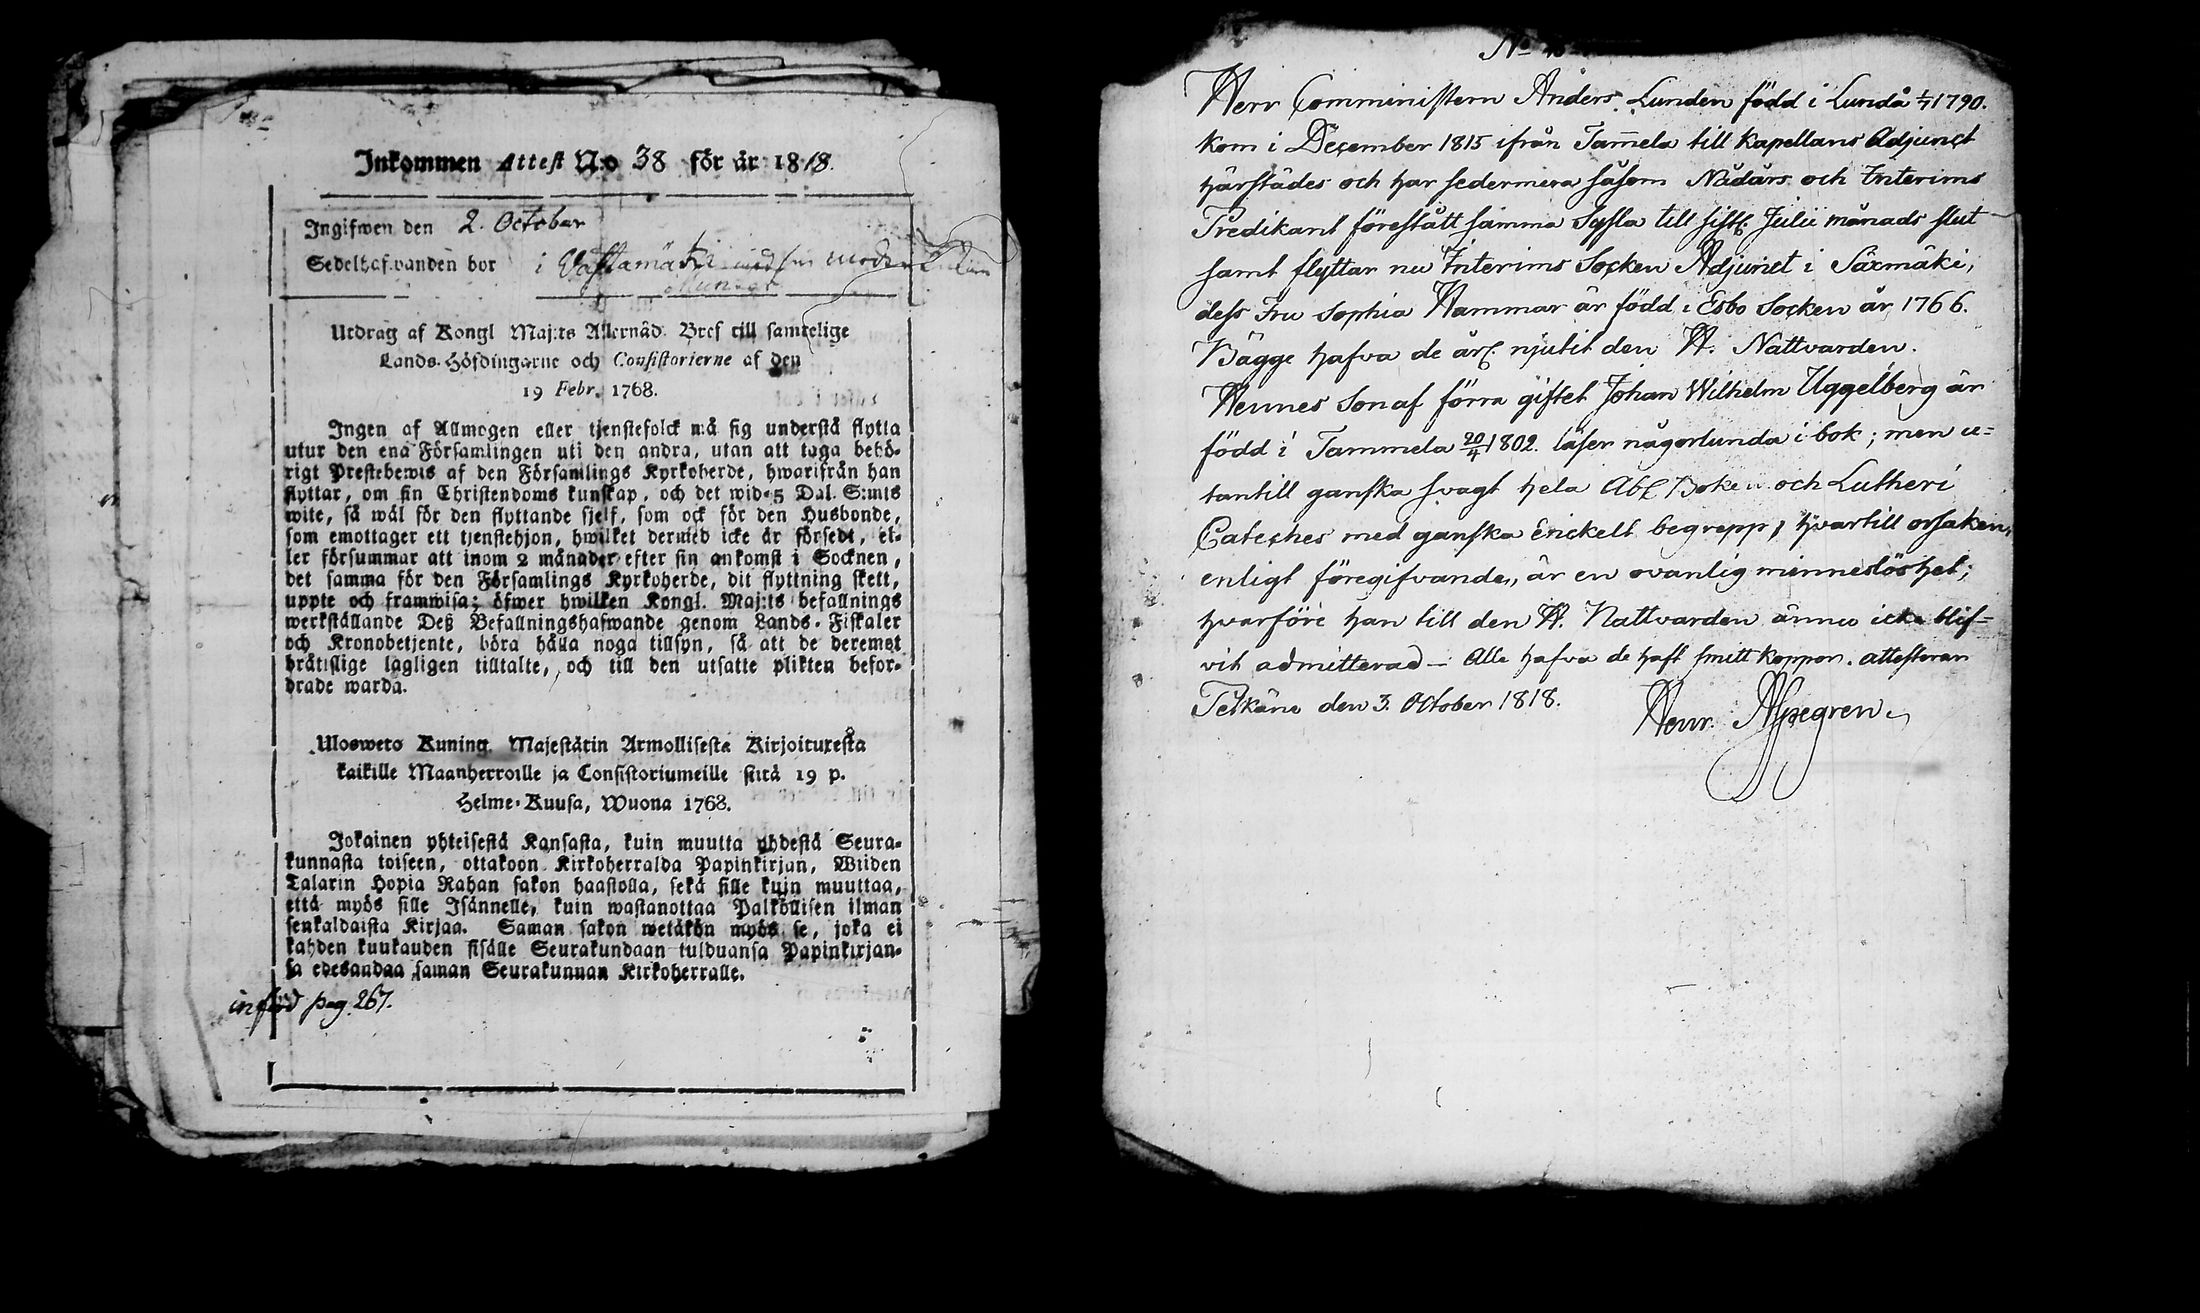 Inkommen Attest N:o 38 för år 1818.
Ingifwen den 2. October
Sedelhafvanden bor i Vahlamäki med sin moder
Utdrag af Kongl Maj:ts Allernåd. Bref till samtelige
Lands-Höfdingarne och Consistorierne af den
19 Febr. 1768.
Ingen af Allmogen eller tjenstefolck må sig understå flytta
utur den ena Församlingen uti den andra, utan att taga behö-
rigt Prestebewis af den Församlings Kyrkoherde, hwarifrån han
flyttar, om sin Christendoms kunskap, och det wid 5 Dal. S:mts
wite, så wäl för den flyttande sjelf, som ock för den Husbonde,
som emottager ett tjenstehjon, hwilket dermed icke är försedt, el-
ler försummar att inom 2 månader efter sin ankomst i Socknen,
det samma för den Församlings Kyrkoherde, dit flyttning skett,
uppte och framwisa; öfwer hwilken Kongl. Maj:ts befallnings
werkställande Deß Befallningshafwande genom Lands-Fiskaler
och Kronobetjente, böra hålla noga tillsyn, så att de deremot
brätslige lagligen tilltalte, och till den utsatte plikten befor-
drade warda.
Uloswets Kuning. Majestätin Armollisesta Kirjoituresta
kaikille Maanherroille ja Consistoriumeille siitä 19 p.
Helme-Kuusa, Wuona 1768.
Jokainen yhteisestä Kansasta, kuin muutta yhdestä Seura-
kunnasta toiseen, ottakoon Kirkoherralda Papinkirjan, Wiiden
Talarin Hopia Rahan sakon haastolla, sekä sille kuin muuttaa,
että myös sille Isännelle, kuin wastanottaa Palkollisen ilman
senkaldaista Kirjaa. Saman sakon wetäkön myös se, joka ei
kahden kuukauden sisälle Seurakundaan tulduansa Papinkirjan-
sa edesandaa saman Seurakunnan Kirkoherralle.
införd pag. 267.
No
Herr Comministern Anders Lunden född i Lundå 1/7 1790.
kom i December 1815 ifrån Tam̄ela till Kapellans Adjunct
härstädes och har sedermera såsom Nådårs och Interims
Predikant förestått samma Syssla till sistl. Julii månads slut
samt flyttar nu Interims Socken Adjunct i Säxmäki,
dess Fru Sophia Hammar är född i Esbo Socken år 1766.
Bägge hafva de årl. njutit den H. Nattvarden.
Hennes Son af förra giftet Johan Wilhelm Uggelberg är
född i Tammela 20/4 1802. läser någorlunda i bok; men u=
tantill ganska svagt hela Abc Boken och Lutheri
Cateches med ganska enckelt begrepp, hvartill orsaken,
enligt föregifvande, är en ovanlig minneslöshet;
hvarföre han till den H. Nattvarden ännu icke blif=
vit admitterad – Alla hafva de haft smittkoppor. attesteras
Pelkäne den 3. October 1818.
Henr. Ahlgren